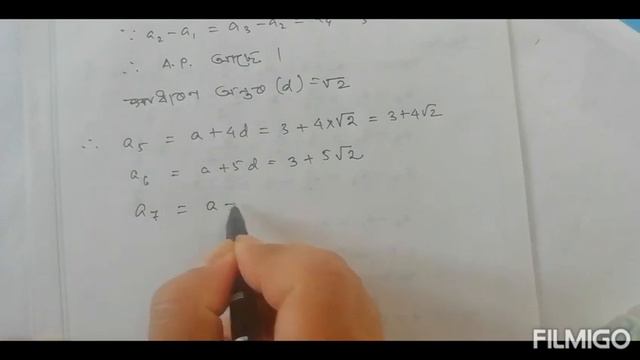 ∵ a₂ - a₁ = a₃ - a₂ =
∴ A.P. আছে ।
সাধাৰণ অন্তৰ (d) = √2
∴ a₅ = a + 4d = 3 + 4×√2 = 3+4√2
a₆ = a + 5d = 3 + 5√2
a₇ = a -
FILMIGO